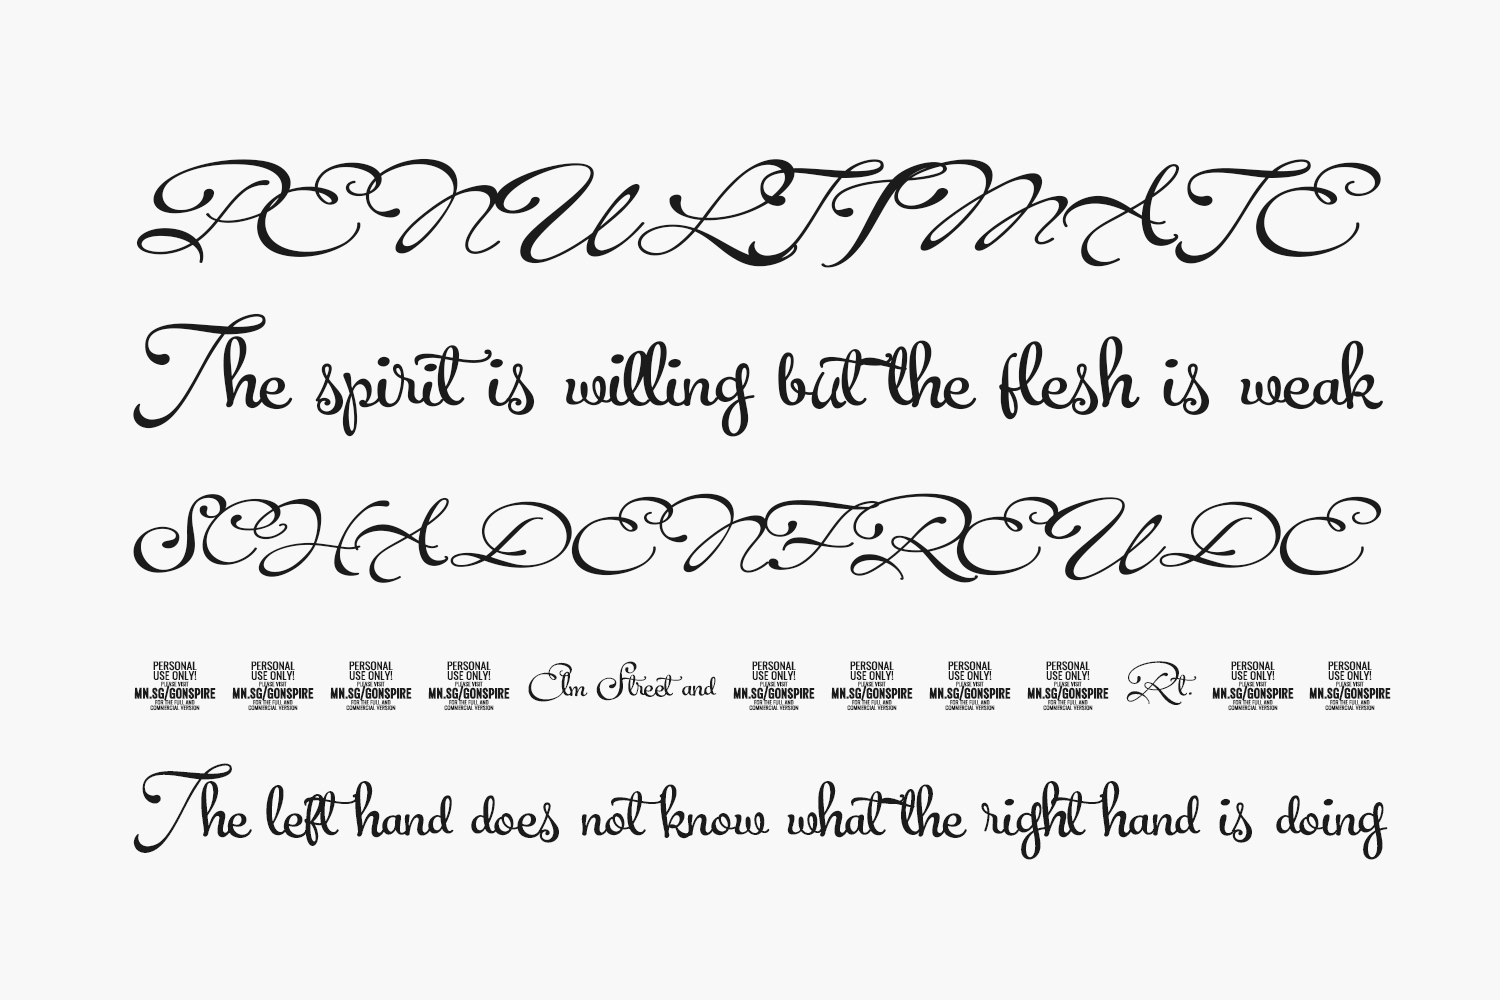 PENULTIMATE
The spirit is willing but the flesh is weak
SCHADENFREUDE
PERSONAL USE ONLY! PLEASE VISIT MN.SG/GONSPIRE FOR THE FULL AND COMMERCIAL VERSION PERSONAL USE ONLY! PLEASE VISIT MN.SG/GONSPIRE FOR THE FULL AND COMMERCIAL VERSION PERSONAL USE ONLY! PLEASE VISIT MN.SG/GONSPIRE FOR THE FULL AND COMMERCIAL VERSION PERSONAL USE ONLY! PLEASE VISIT MN.SG/GONSPIRE FOR THE FULL AND COMMERCIAL VERSION Elm Street and PERSONAL USE ONLY! PLEASE VISIT MN.SG/GONSPIRE FOR THE FULL AND COMMERCIAL VERSION PERSONAL USE ONLY! PLEASE VISIT MN.SG/GONSPIRE FOR THE FULL AND COMMERCIAL VERSION PERSONAL USE ONLY! PLEASE VISIT MN.SG/GONSPIRE FOR THE FULL AND COMMERCIAL VERSION PERSONAL USE ONLY! PLEASE VISIT MN.SG/GONSPIRE FOR THE FULL AND COMMERCIAL VERSION Rt. PERSONAL USE ONLY! PLEASE VISIT MN.SG/GONSPIRE FOR THE FULL AND COMMERCIAL VERSION PERSONAL USE ONLY! PLEASE VISIT MN.SG/GONSPIRE FOR THE FULL AND COMMERCIAL VERSION
The left hand does not know what the right hand is doing